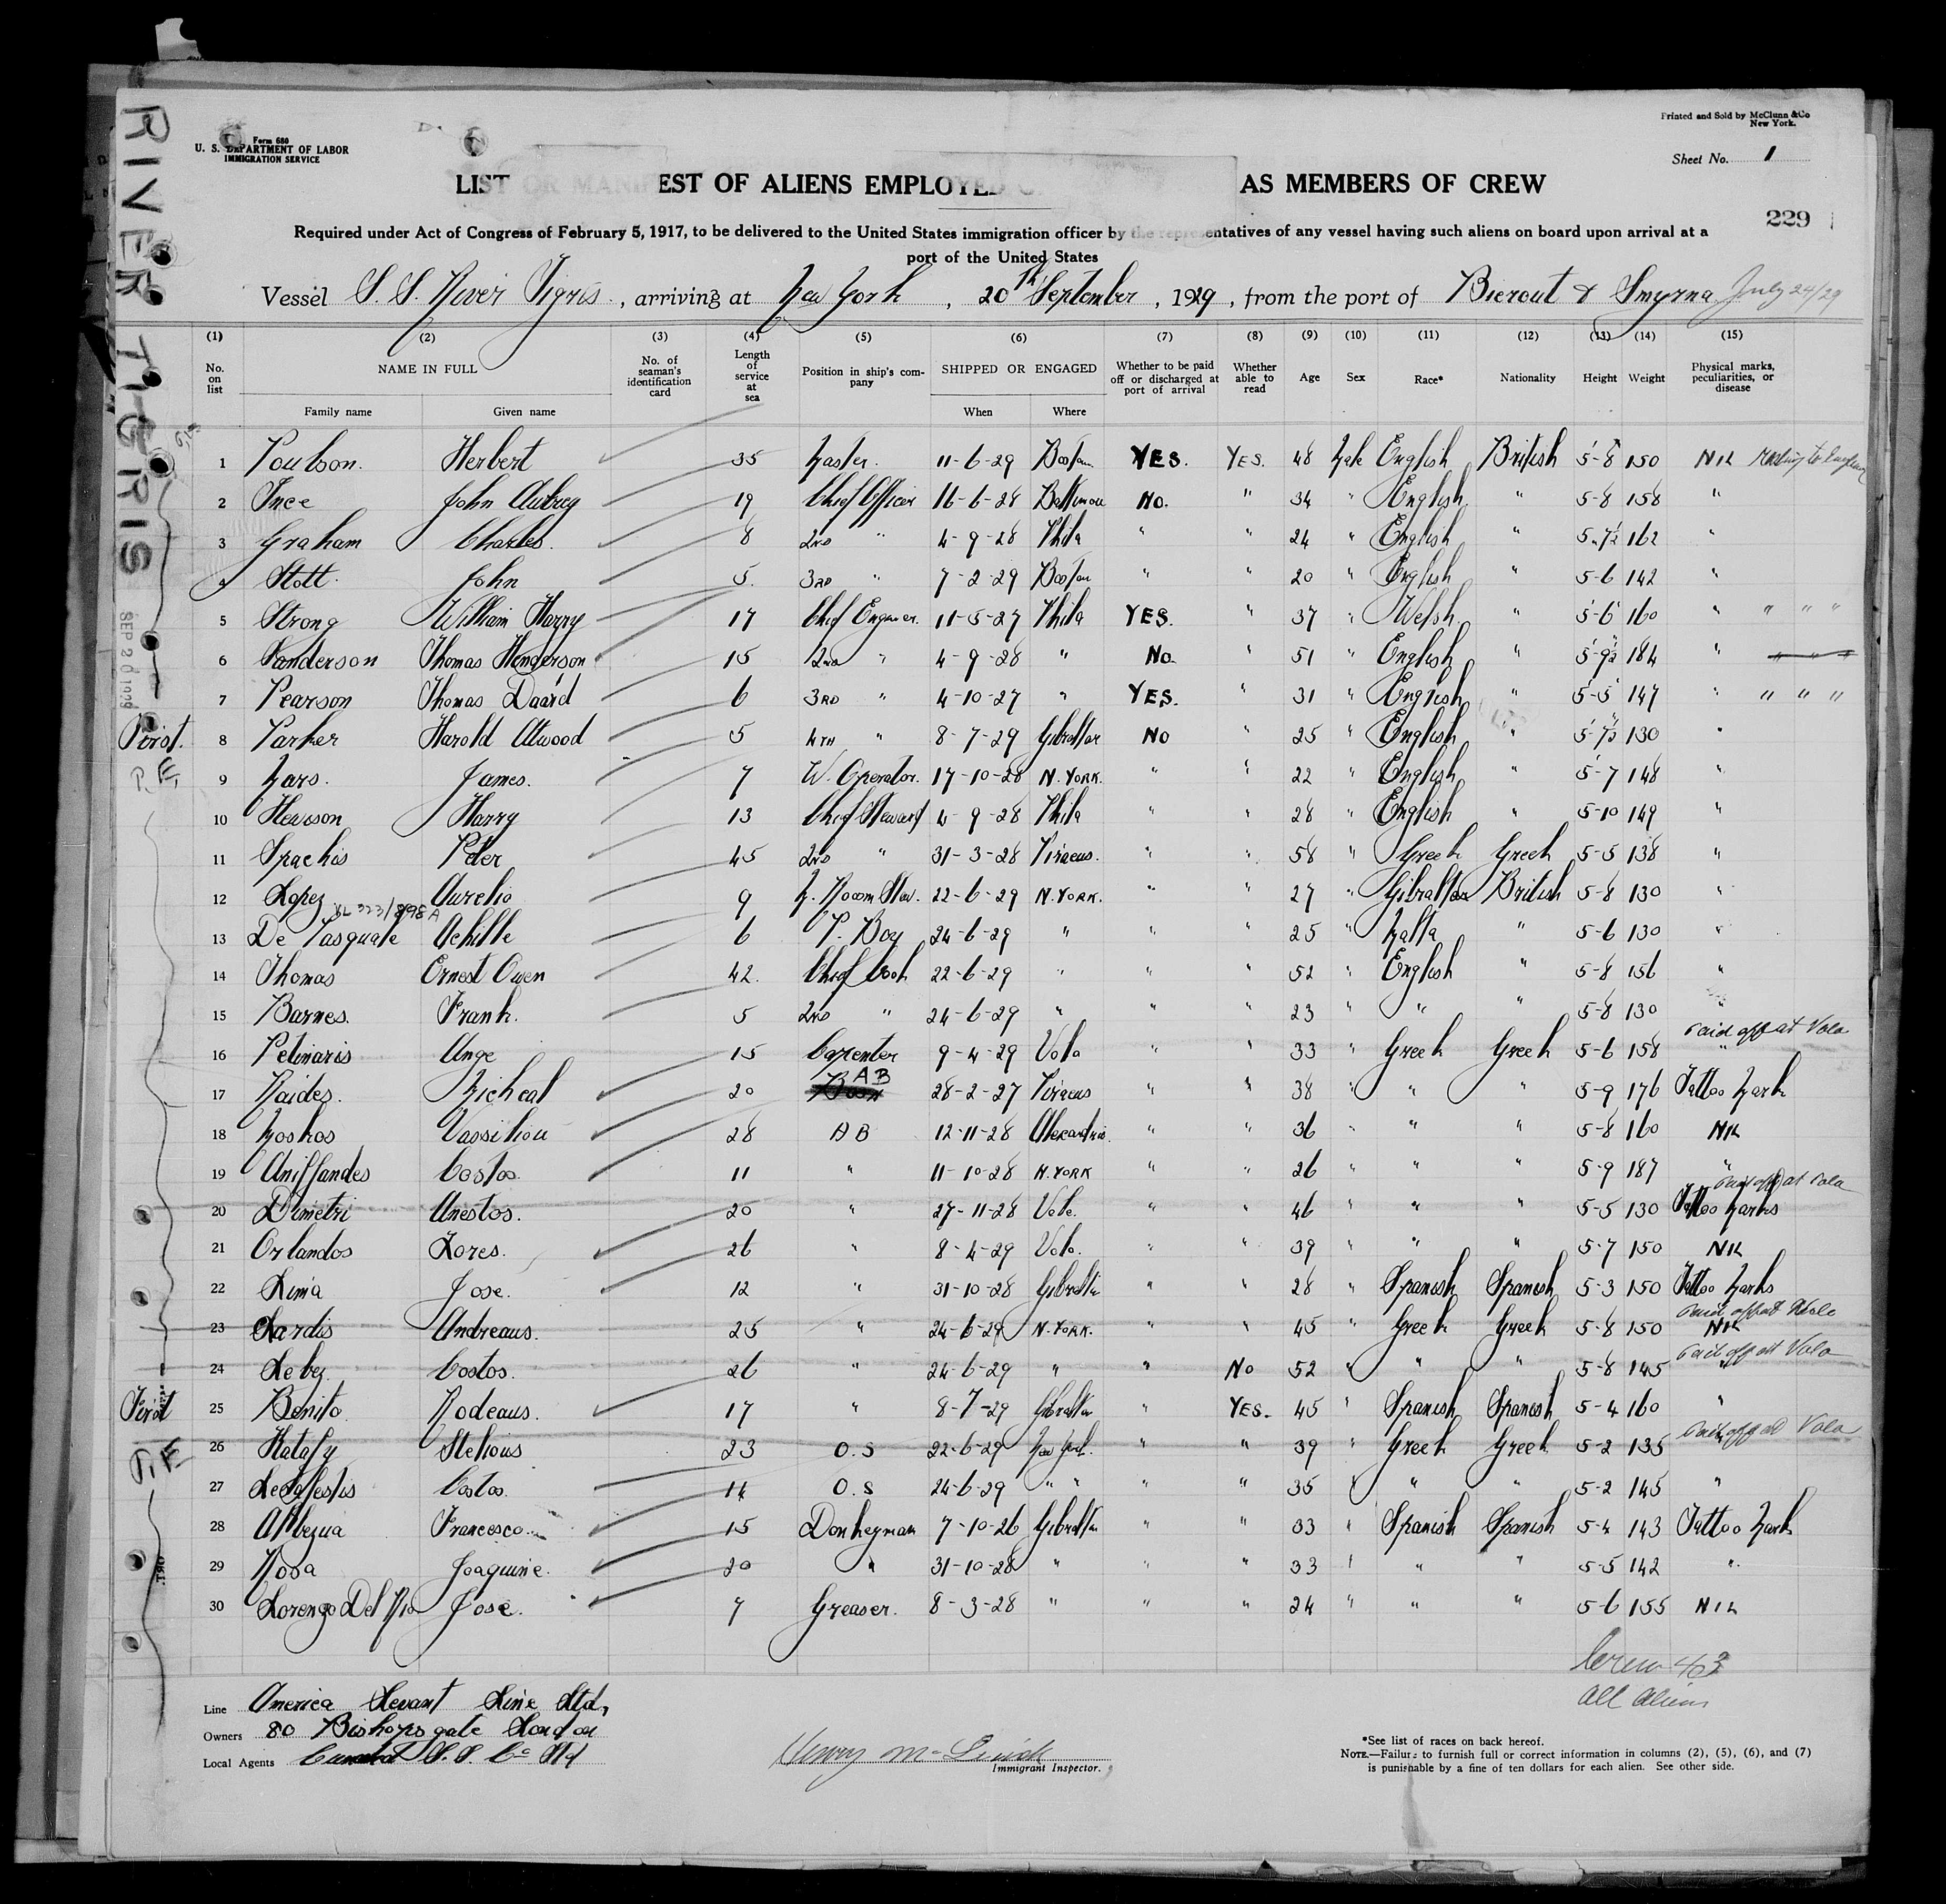 RIVER TIGRIS
SEP 20 1929
Form 680
U. S. DEPARTMENT OF LABOR
IMMIGRATION SERVICE
Printed and Sold by McClunn & Co
New York.
Sheet No. 1
LIST OR MANIFEST OF ALIENS EMPLOYED AS MEMBERS OF CREW
229
Required under Act of Congress of February 5, 1917, to be delivered to the United States immigration officer by the representatives of any vessel having such aliens on board upon arrival at a
port of the United States
Vessel S. S. River Tigris, arriving at New York, 20th September, 1929, from the port of Bierout & Smyrna July 24/29
(1) (2) (3) (4) (5) (6) (7) (8) (9) (10) (11) (12) (13) (14) (15)
No. on list NAME IN FULL Family name Given name No. of seaman's identification card Length of service at sea Position in ship's company SHIPPED OR ENGAGED When Where Whether to be paid off or discharged at port of arrival Whether able to read Age Sex Race* Nationality Height Weight Physical marks, peculiarities, or disease
1 Poulson. Herbert 35 Master. 11-6-29 Boston YES. YES. 48 Male English British 5-8 150 Nil
2 Ince John Aubrey 19 Chief Officer 16-6-28 Baltimore No. " 34 " English " 5-8 158 "
3 Graham Charles. 8 2ND " 4-9-28 Phila " " 24 " English " 5-7½ 162 "
4 Stott. John 5. 3RD " 7-2-29 Boston " " 20 " English " 5-6 142 "
5 Strong William Harry 17 Chief Engineer. 11-5-27 Phila YES. " 37 " Welsh. " 5-6 160 " " " "
6 Sanderson Thomas Henderson 15 2ND " 4-9-28 " No " 51 " English " 5-9½ 184 " " " "
7 Pearson Thomas David 6 3RD " 4-10-27 " YES. " 31 " English " 5-5 147 " " " "
First. 8 Parker Harold Atwood 5 4TH " 8-7-29 Gibraltar NO " 25 " English " 5-7½ 130 "
P.E. 9 Mars. James. 7 W. Operator. 17-10-28 N. YORK. " " 22 " English " 5-7 148 "
10 Hewson Harry 13 Chief Steward 4-9-28 Phila " " 28 " English " 5-10 149 "
11 Spachis Peter 45 2ND " 31-3-28 Piraeus. " " 58 " Greek Greek 5-5 138 "
12 Lopez Aurelio 9 M. Room Stew. 22-6-29 N. YORK. " " 27 " Gibraltar British 5-8 130 "
13 De Pasquale Achille 6 P. Boy 24-6-29 " " " 25 " Malta " 5-6 130 "
14 Thomas Ernest Owen 42. Chief Cook 22-6-29 " " " 52 " English " 5-8 156 "
15 Barnes. Frank. 5 2ND " 24-6-29 " " " 23 " " " 5-8 130 "
Paid off at Volo
16 Pelinaris Ange 15 Carpenter 9-4-29 Volo " " 33 " Greek Greek 5-6 158 "
17 Raides. Micheal 20 AB 28-2-27 Piraeus " " 38 " " " 5-9 176 Tattoo Mark
18 Moskos Vassiliou 28 AB 12-11-28 Alexandria. " " 36 " " " 5-8 160 Nil
19 Aniffandes Costos. 11 " 11-10-28 N. YORK " " 26 " " " 5-9 187 "
Paid off at Volo
20 Dimetri Anestos. 20 " 27-11-28 Volo. " " 46 " " " 5-5 130 Tattoo Marks
21 Orlandos Lores. 26 " 8-4-29 Volo. " " 39 " " " 5-7 150 Nil
22 Lima Jose. 12 " 31-10-28 Gibraltar " " 28 " Spanish Spanish 5-3 150 Tattoo Marks
Paid off at Volo
23 Lardis Andreaus. 25 " 24-6-29 N. YORK. " " 45 " Greek Greek 5-8 150 Nil
Paid off at Volo
24 Lebez. Costos. 26 " 24-6-29 " " No 52 " " " 5-8 145 "
First 25 Benito Rodeaus. 17 " 8-7-29 Gibraltar " YES. 45 " Spanish Spanish 5-4 160 "
Paid off at Volo
P.E. 26 Katafy Stelious 23 O.S 22-6-29 New York. " " 39 " Greek Greek 5-2 135
27 Costos. 14 O.S 24-6-29 " " " " 35 " " " 5-2 145 "
28 Francesco. 15 Donkeyman 7-10-26 Gibraltar " " 33 " Spanish Spanish 5-4 143 Tattoo Mark
29 Rosa Joaquine. 20 " 31-10-28 " " " 33 " " " 5-5 142 "
30 Lorengo Del Rio Jose. 7 Greaser. 8-3-28 " " " 24 " " " 5-6 155 NIL
Crew 43
all aliens
Line America Levant Line Ltd,
Owners 80 Bishopsgate London
Local Agents Cunard S.S. Co Ltd
Henry
Immigrant Inspector.
*See list of races on back hereof.
NOTE.—Failure to furnish full or correct information in columns (2), (5), (6), and (7)
is punishable by a fine of ten dollars for each alien. See other side.